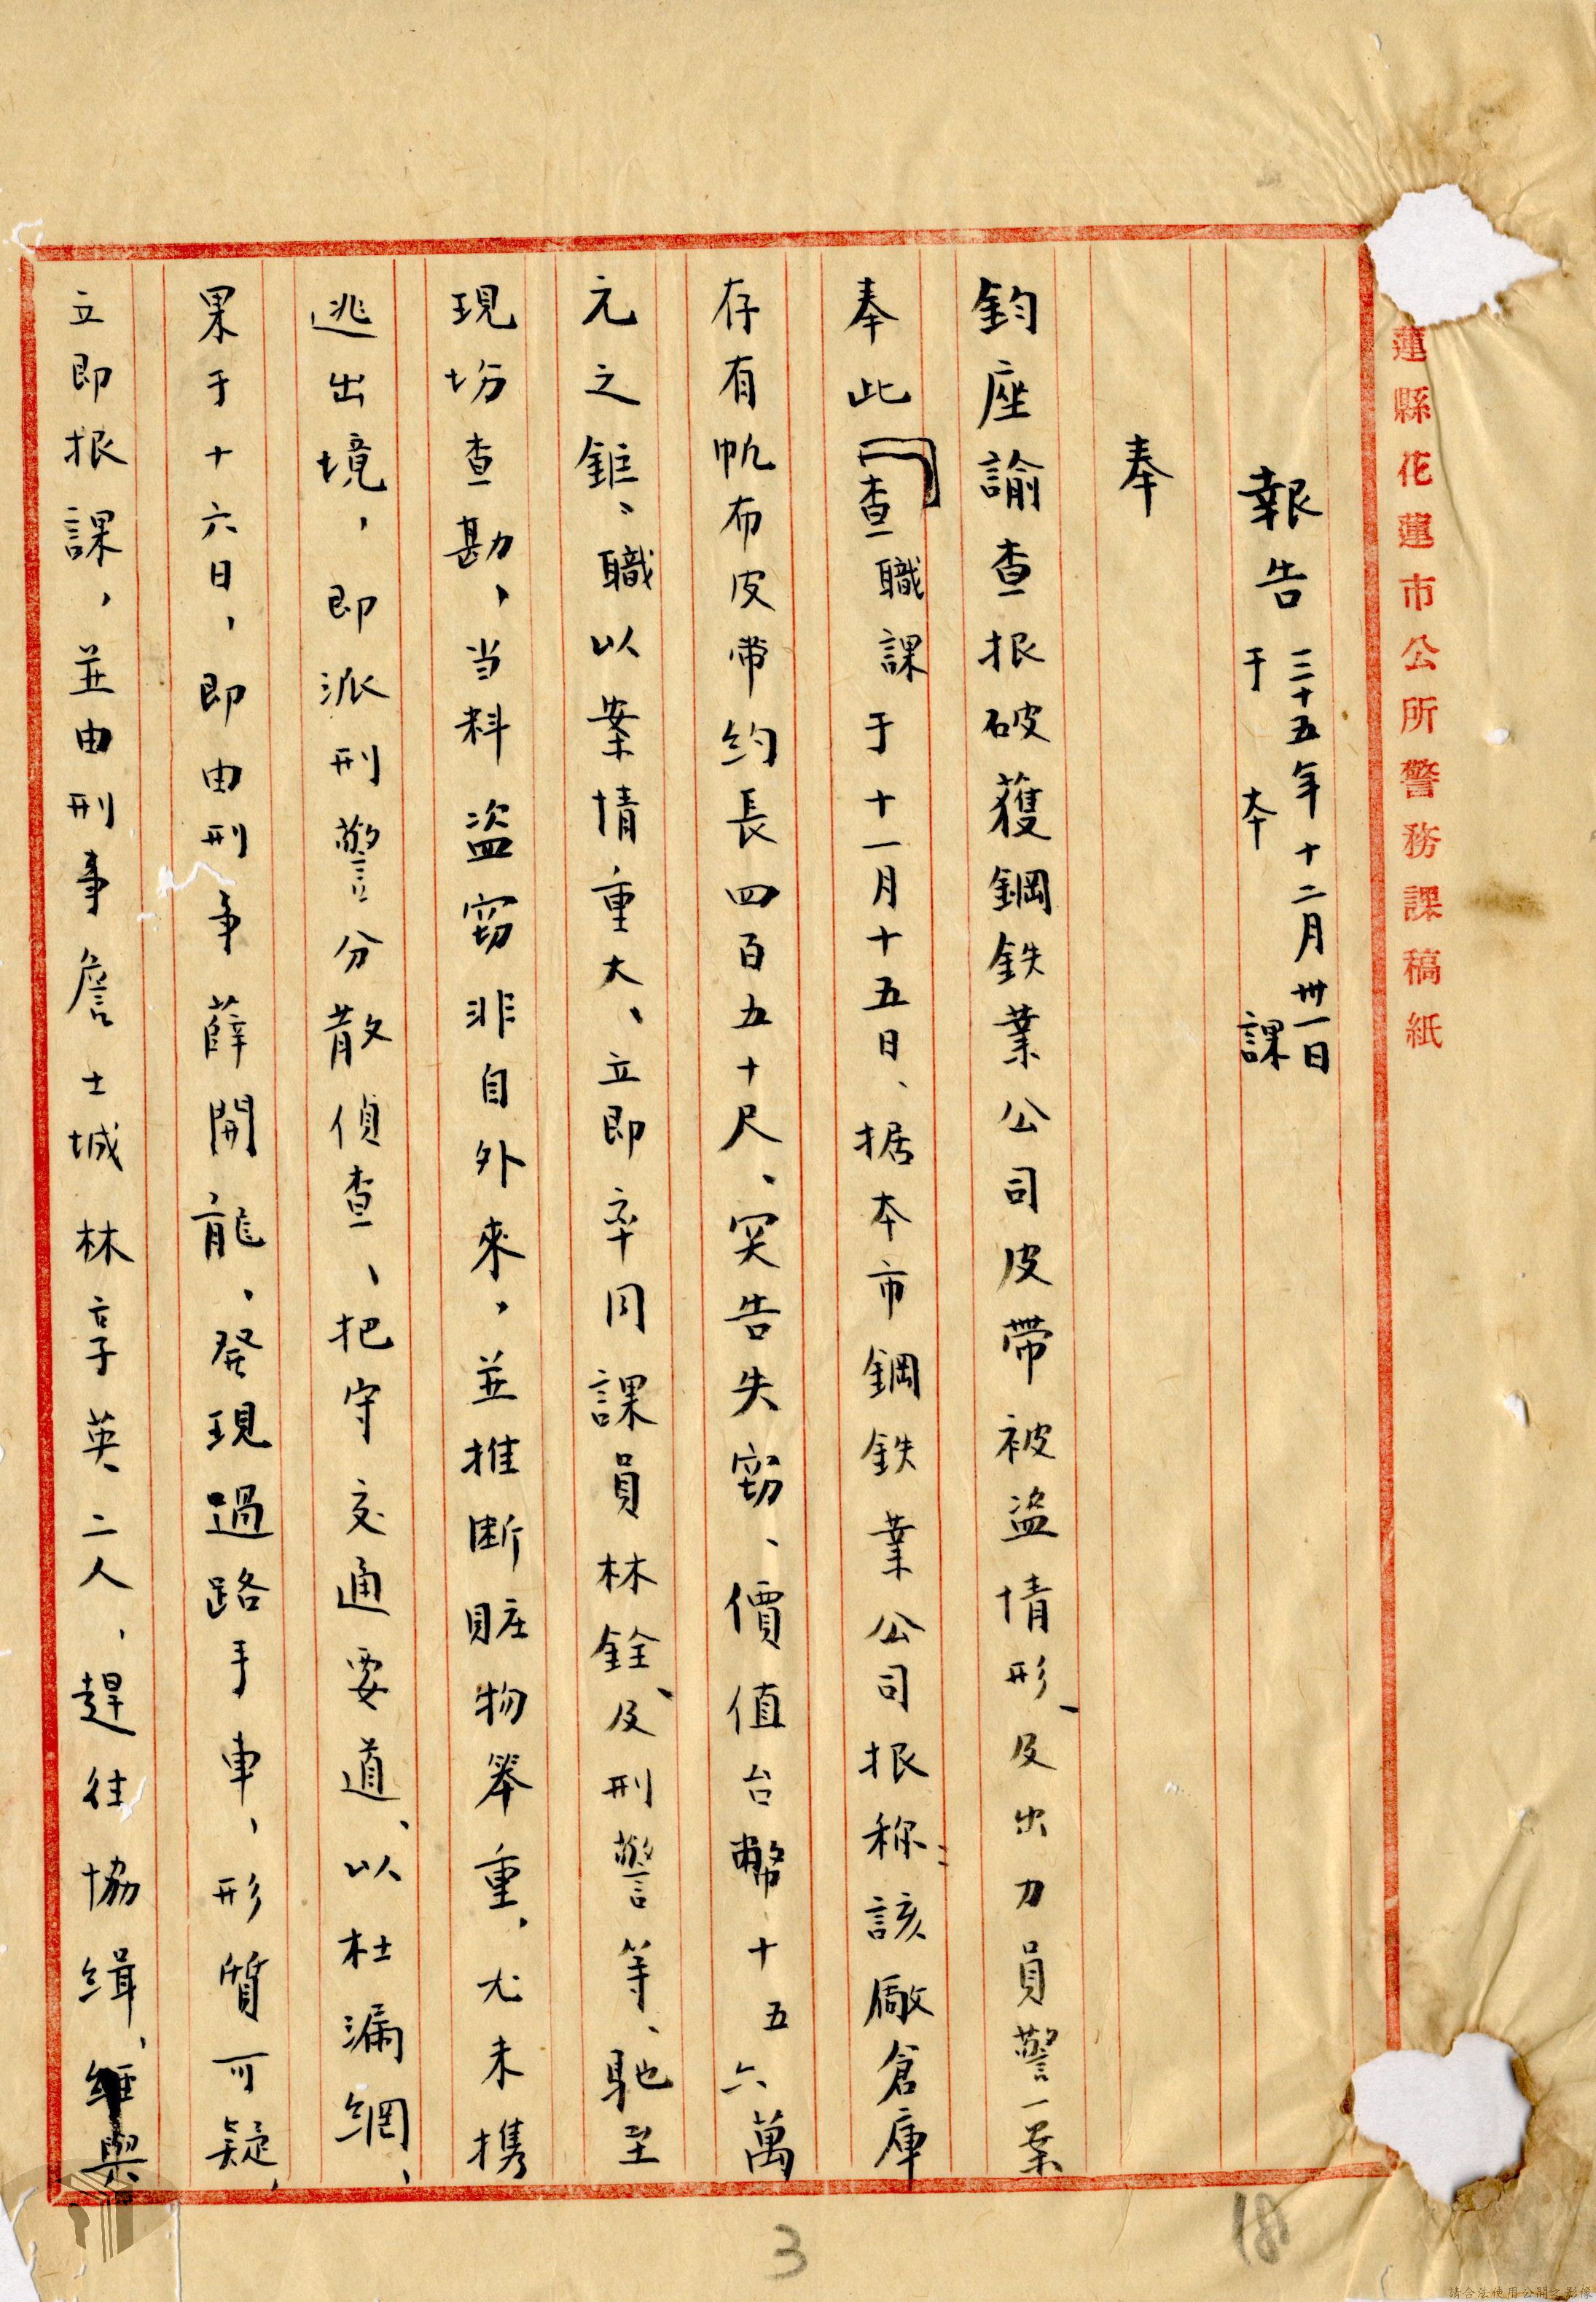 蓮縣花蓮市公所警務課稿紙
報告 三十五年十二月卅一日
于本課
奉
鈞座諭查报破獲鋼鉄業公司皮帶被盜情形、及出力員警一案
奉此「查職課于十一月十五日、据本市鋼鉄業公司报称：該廠倉庫
存有帆布皮帶約長四百五十尺、突告失窃、價值台幣十五六萬
元之鉅、職以案情重大、立即率同課員林銓、及刑警等、馳至
現场查勘，当料盗窃非自外來，並推断賍物举重，尤未携
逃出境，即派刑警分散偵查、把守交通要道、以杜漏網、
果于十六日，即由刑事薛開龍、発現過路手車，形質可疑、
立即报課，並由刑事詹士城林享英二人，趕往協緝、
3
181
請合法使用公開之影像